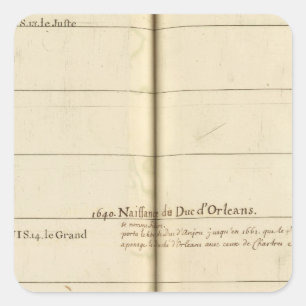 S.13. le Juste
1640. Naissance du Duc d'Orleans.
se nomma
porta le duc d'Anjou jusqu'en 1661. que le
IS.14. le Grand
apanage le duché d'Orleans avec ceux de Chartres e